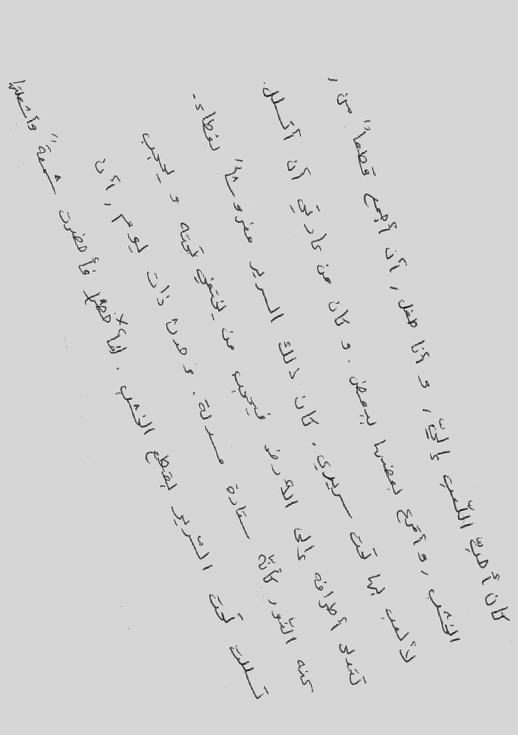 كان أحبّ اللّعب إليّ، و أنا طفل، أن أجمع قطعاً من،
الخشب، و أقرع بعضها ببعض. و كان من عادتي أن أتسلل
لألعب بها تحت سريري. كان ذلك السرير مفروشاً بغطاء.
تتدلى أطرافه إلى الأرض فيحجب من يختفي تحته و يحجب
عنه النّور كأنّه ستارة مسدلة. و حدث ذات يوم، أن
تسللت تحت السّرير بقطع الخشب. فأحضرت شمعةً وأشعلتها